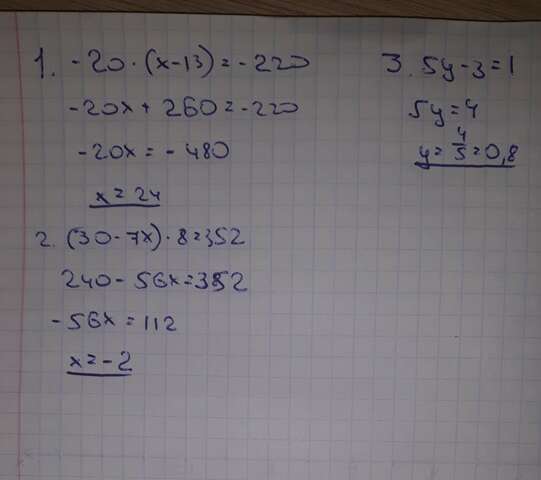 1. -20·(x-13)=-220
-20x+260=-220
-20x=-480
x=24
2. (30-7x)·8=352
240-56x=352
-56x=112
x=-2
3. 5y-3=1
5y=4
y=4/5=0,8